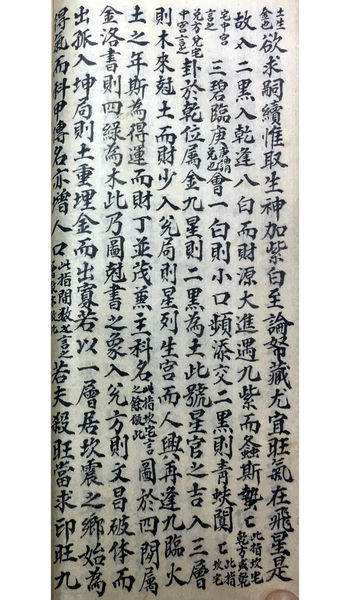 土生金也欲求嗣續惟取生神加紫白至論帑藏尤宜旺氣在飛星是
故八二黑入乾逢八白而財源大進遇九紫而螽斯蟄〻此指坎宅乾方或乾
宅中宮言之三碧臨庚庚謂兌也會一白則小口頻添交二黑則青蚨闐〻此指坎宅
兌方兌宅中宮言之卦於乾位属金九星則二黑為土此號星官之吉入三層
則木來尅土而財少入兌局則星列生宮而人興再逢九臨火
土之年斯為得運而財丁並茂兼王科名此指坎宅言之餘倣此圖於四間属
金洛書則四綠為木此乃圖尅書之象入兌方則文昌破体而
出孤入坤局則土重埋金而出寡若以一層居坎震之鄉始為
得氣而科甲傳名亦增人口此指間數言之若夫殺旺當求印旺九